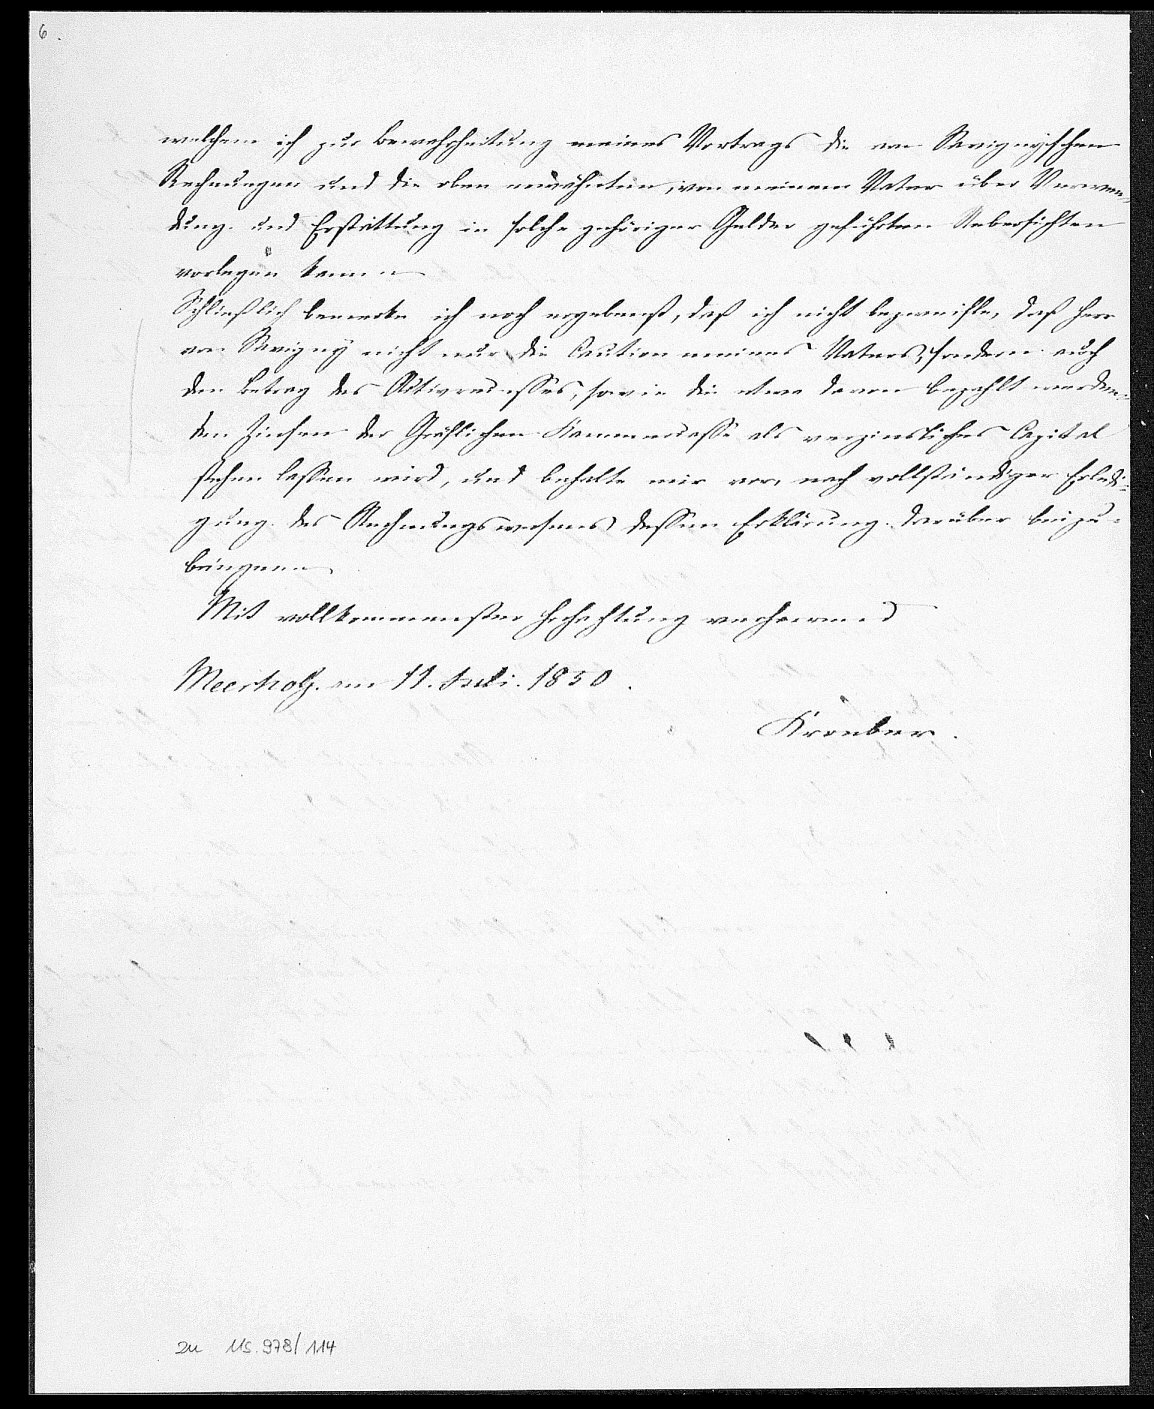 6.
welchem ich zur Bewahrheitung meines Vortrags die von Savigny'schen
Rechnungen und die oben erwähnten, von meinem Vater über Verwen-
dung und Erstattung in solche gehöriger Gelder geführten Uebersichten
vorlegen kann.
Schließlich bemerke ich noch ergebenst, daß ich nicht bezweifle, daß Herr
von Savigny nicht nur die Caution meines Vaters, sondern auch
den Betrag des Activrecesses, sowie die etwa davon bezahlt werden-
den Zinsen der Gräflichen Kammercasse als verzinsliches Capital
stehen lassen wird, und behalte mir vor, nach vollständiger Erledi-
gung des Rechnungswesens dessen Erklärung darüber beizu-
bringen.
Mit vollkommenster Hochachtung verharrend
Meerholz am 11. Juli. 1850.
Kroeber.
zu Ms. 978/114